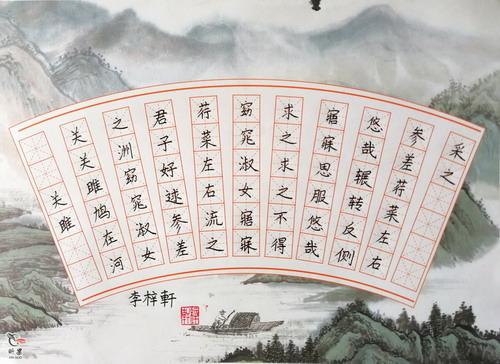 关雎
关关雎鸠在河
之洲窈窕淑女
君子好逑参差
荇菜左右流之
窈窕淑女寤寐
求之求之不得
寤寐思服悠哉
悠哉辗转反侧
参差荇菜左右
采之
李梓軒